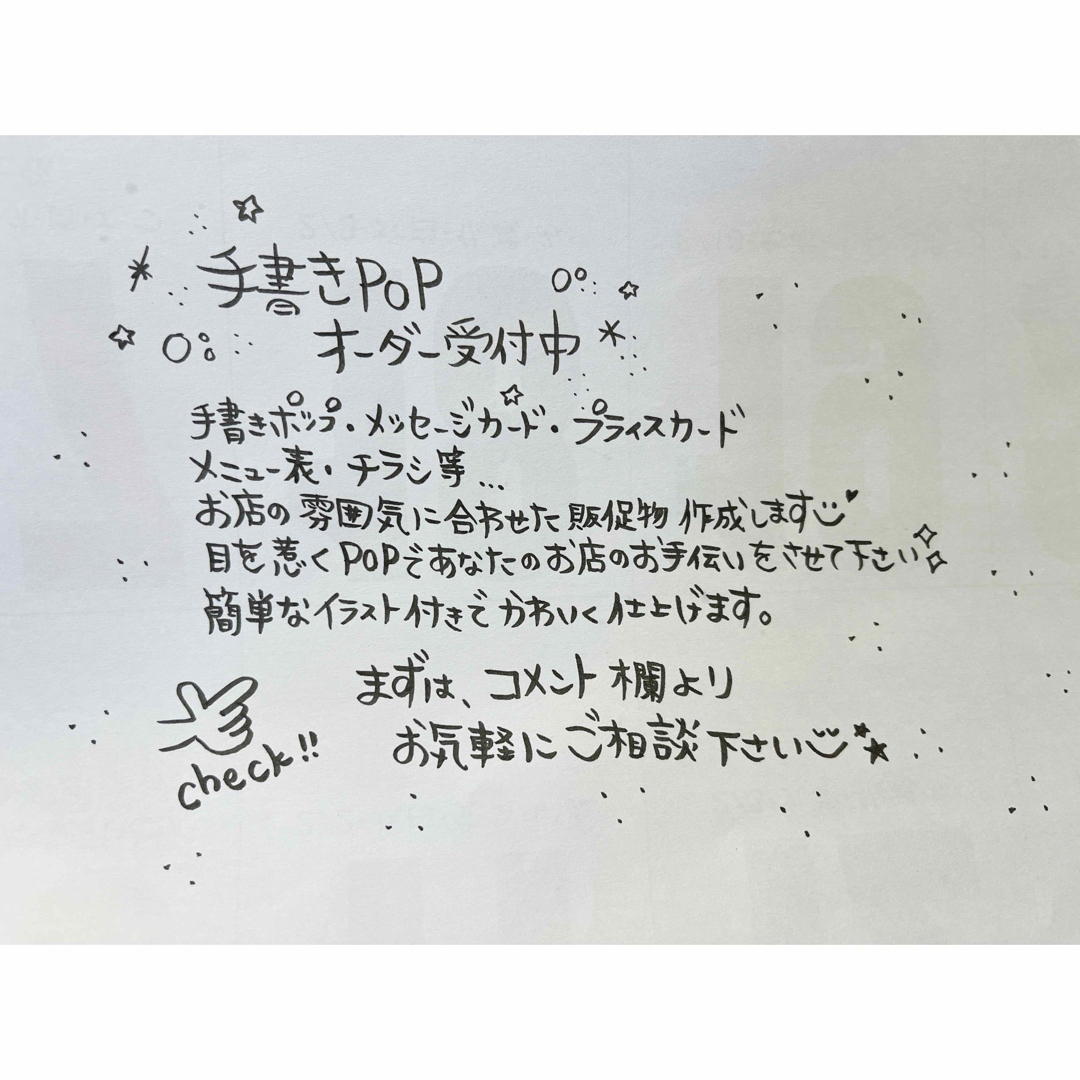 手書きPOP
オーダー受付中
手書きポップ・メッセージカード・プライスカード
メニュー表・チラシ等...
お店の雰囲気に合わせた販促物作成します
目を惹くPOPであなたのお店のお手伝いをさせて下さい
簡単なイラスト付きでかわいく仕上げます。
まずは、コメント欄より
お気軽にご相談下さい
check!!